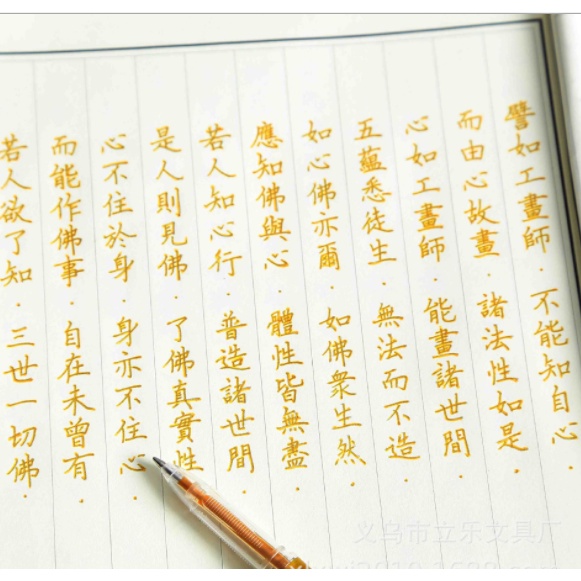 譬如工畫師．不能知自心．
而由心故畫．諸法性如是．
心如工畫師．能畫諸世間．
五蘊悉徒生．無法而不造．
如心佛亦爾．如佛衆生然．
應知佛與心．體性皆無盡．
若人知心行．普造諸世間．
是人則見佛．了佛真實性
心不住於身．身亦不住心．
而能作佛事．自在未曾有．
若人欲了知．三世一切佛．
义乌市立乐文具厂